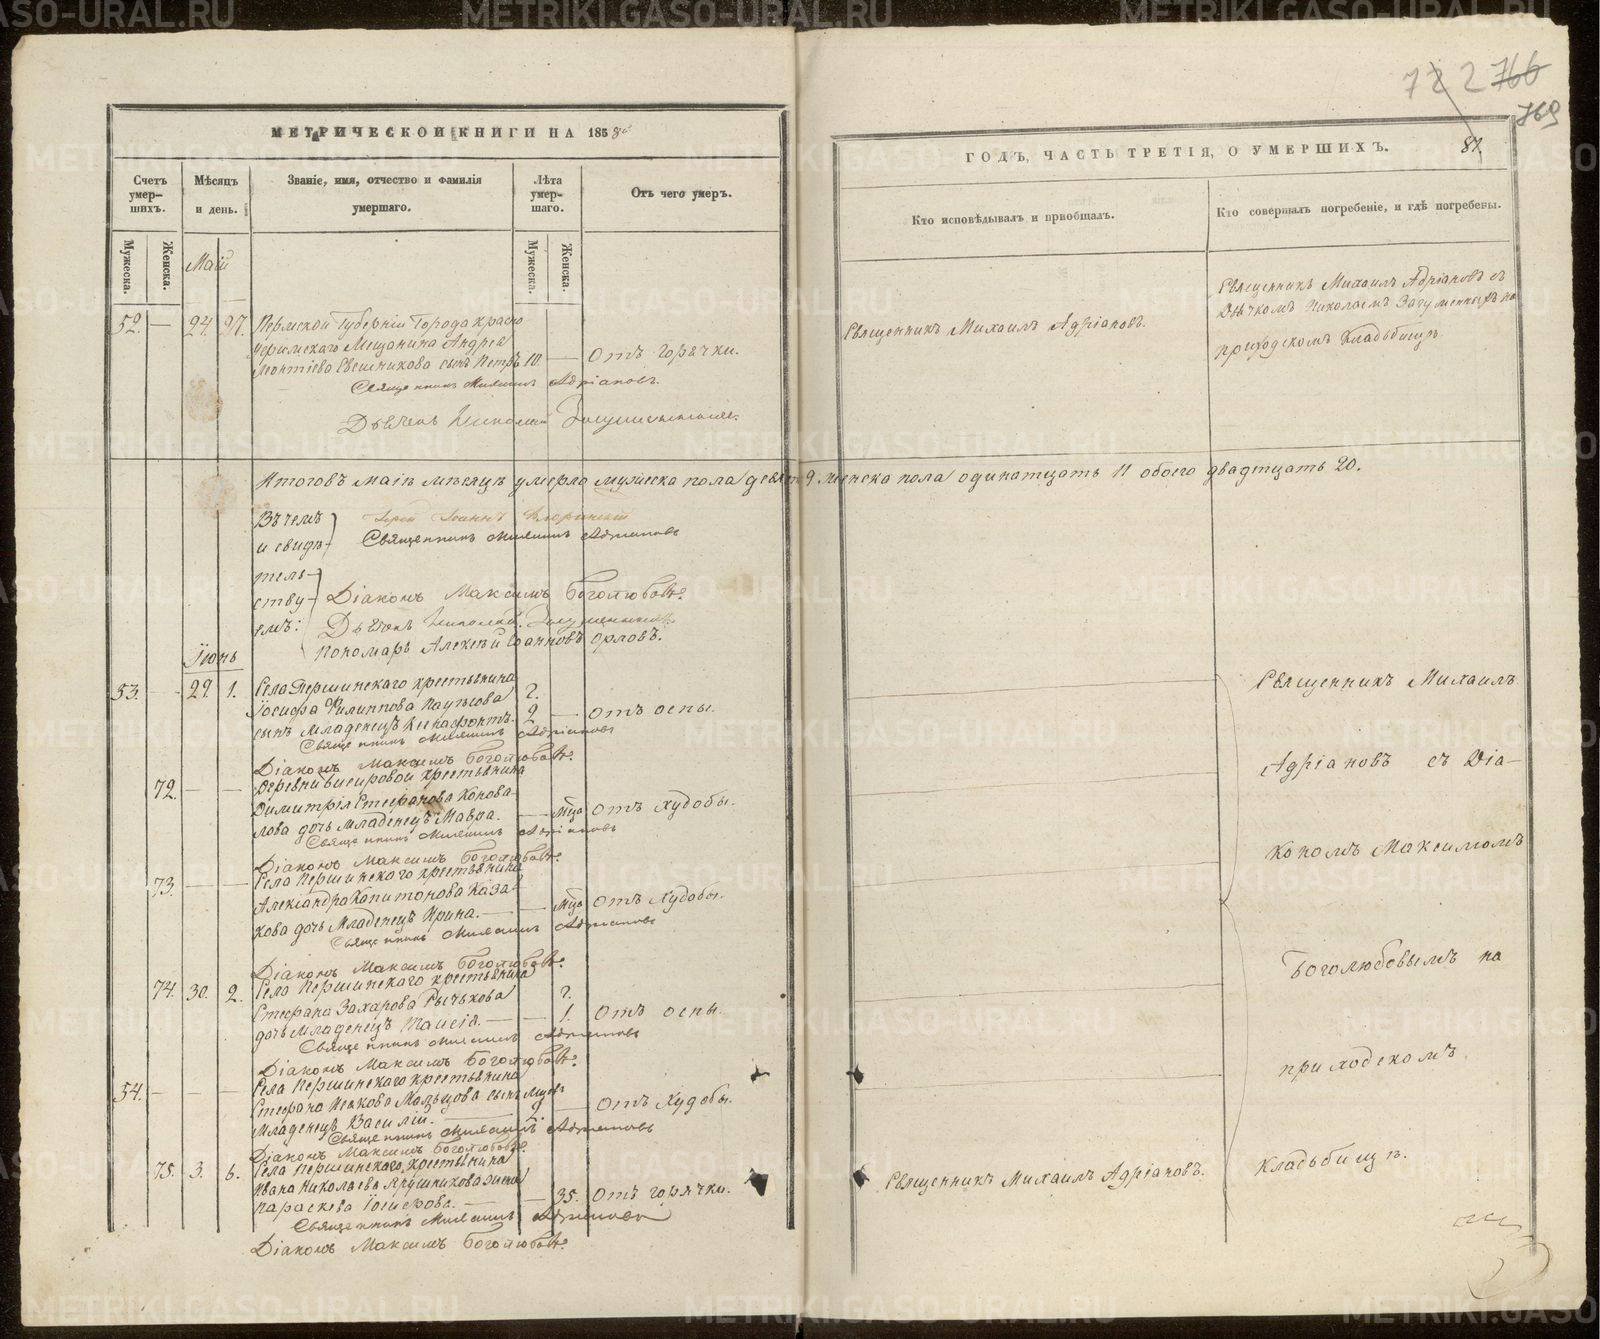 МЕТРИЧЕСКОЙ КНИГИ НА 1858й
Счетъ умер-шихъ.
Мѣсяцъ и день.
Званіе, имя, отчество и фамилія умершаго.
Лѣта умер-шаго.
Отъ чего умеръ.
Мужеска. Женска.
Мужеска. Женска.
Маій
52. — 24. 27. Пермской Губерніи Города Красно
уфимскаго Мещанина Андрея
Леонтіева Свешникова сынъ Петръ 10. — Отъ горячки.
Священникъ Михаилъ Адріановъ.
Дьячекъ Николай
Итого въ маіѣ мѣсяцѣ умерло мужеска пола девять 9. женска пола одинатцать 11 обоего двадтцать 20.
Въ чемъ
и свидѣ-
тель-
ству-
емъ:
Іерей Іоаннъ
Священникъ Михаилъ Адріановъ
Діаконъ Максимъ Боголюбовъ.
Дьячекъ Николай
Пономарь Алексѣй Іоанновъ Орловъ.
Іюнь
53. — 29. 1. Села Першинскаго крестьянина
Іосифа Филиппова
сынъ младенецъ Ксенофонтъ. г. 2 — Отъ оспы.
Священникъ Михаилъ Адріановъ
Діаконъ Максимъ Боголюбовъ.
72. — — Деревни крестьянина
Димитрія Стефанова Конова-
лова дочь младенецъ Мавра. — Отъ худобы.
Священникъ Михаилъ Адріановъ
Діаконъ Максимъ Боголюбовъ.
73. — — Села Першинскаго крестьянина
Александра Капитонова Каза-
кова дочь младенецъ Ирина. — Отъ худобы.
Священникъ Михаилъ Адріановъ
Діаконъ Максимъ Боголюбовъ.
74. 30. 2. Села Першинскаго крестьянина
Стефана Захарова Рычкова г.
дочь младенецъ Таисія. — 1. Отъ оспы.
Священникъ Михаилъ Адріановъ
Діаконъ Максимъ Боголюбовъ.
54. — — — Села Першинскаго крестьянина
Стефана Мальцова сынъ
младенецъ Василій. — Отъ худобы.
Священникъ Михаилъ Адріановъ
Діаконъ Максимъ Боголюбовъ.
75. 3. 6. Села Першинскаго крестьянина
Ивана Николаева жена
Параскева — 35. Отъ горячки.
Священникъ Михаилъ Адріановъ
Діаконъ Максимъ Боголюбовъ.
72 2 766
769
ГОДЪ, ЧАСТЬ ТРЕТІЯ, О УМЕРШИХЪ. 87.
Кто исповѣдывалъ и пріобщалъ.
Кто совершалъ погребеніе, и гдѣ погребены.
Священникъ Михаилъ Адріановъ.
Священникъ Михаилъ Адріановъ съ
Дьячкомъ Николаемъ на
приходскомъ кладьбищѣ
Священникъ Михаилъ
Адріановъ съ Діа-
кономъ Максимомъ
Боголюбовымъ на
приходскомъ
кладьбищѣ.
Священникъ Михаилъ Адріановъ.
METRIKI.GASO-URAL.RU